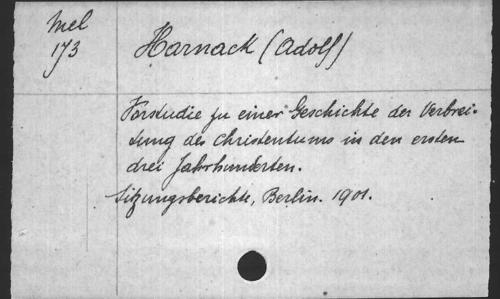 Mel
173
Harnack (Adolf)
Vorstudie zu einer Geschichte der Verbrei-
tung des Christentums in den ersten
drei Jahrhunderten.
Sitzungsberichte, Berlin. 1901.